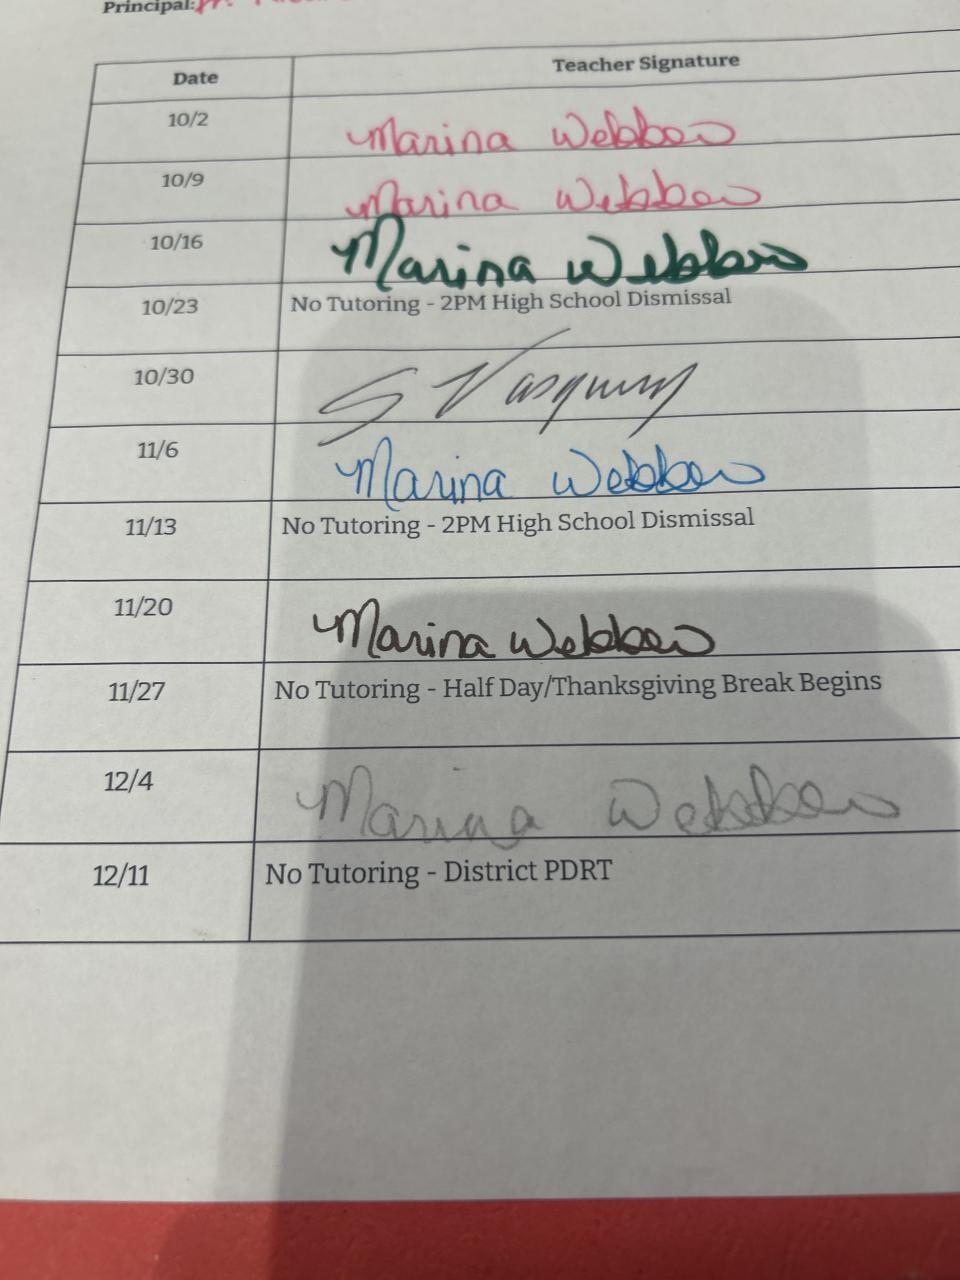 Principal:
Date Teacher Signature
10/2 Marina Webber
10/9 Marina Webber
10/16 Marina Webber
10/23 No Tutoring - 2PM High School Dismissal
10/30 S Vasquez
11/6 Marina Webber
11/13 No Tutoring - 2PM High School Dismissal
11/20 Marina Webber
11/27 No Tutoring - Half Day/Thanksgiving Break Begins
12/4 Marina Webber
12/11 No Tutoring - District PDRT